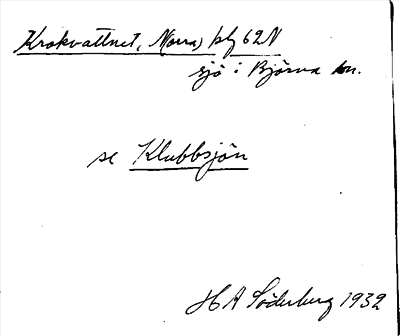 Krokvattnet, Norra, blj 62N
sjö i Björna sn.
se Klubbsjön
H A Söderberg 1932